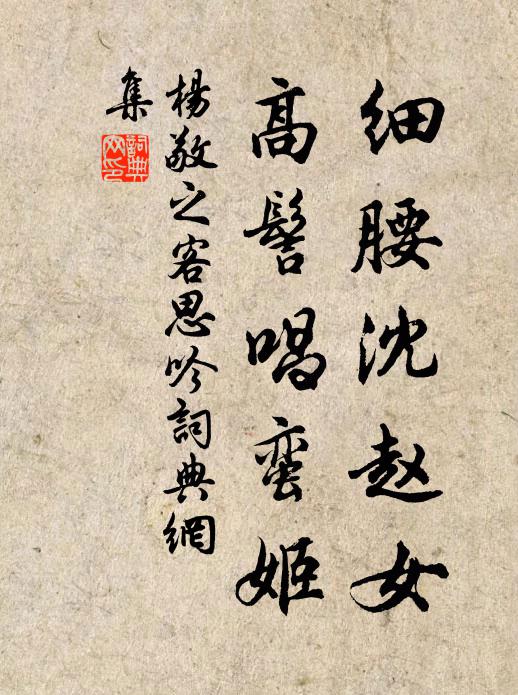 细腰沈赵女
高髻唱蛮姬
楊敬之客思吟詞典網
集
詞典
网印